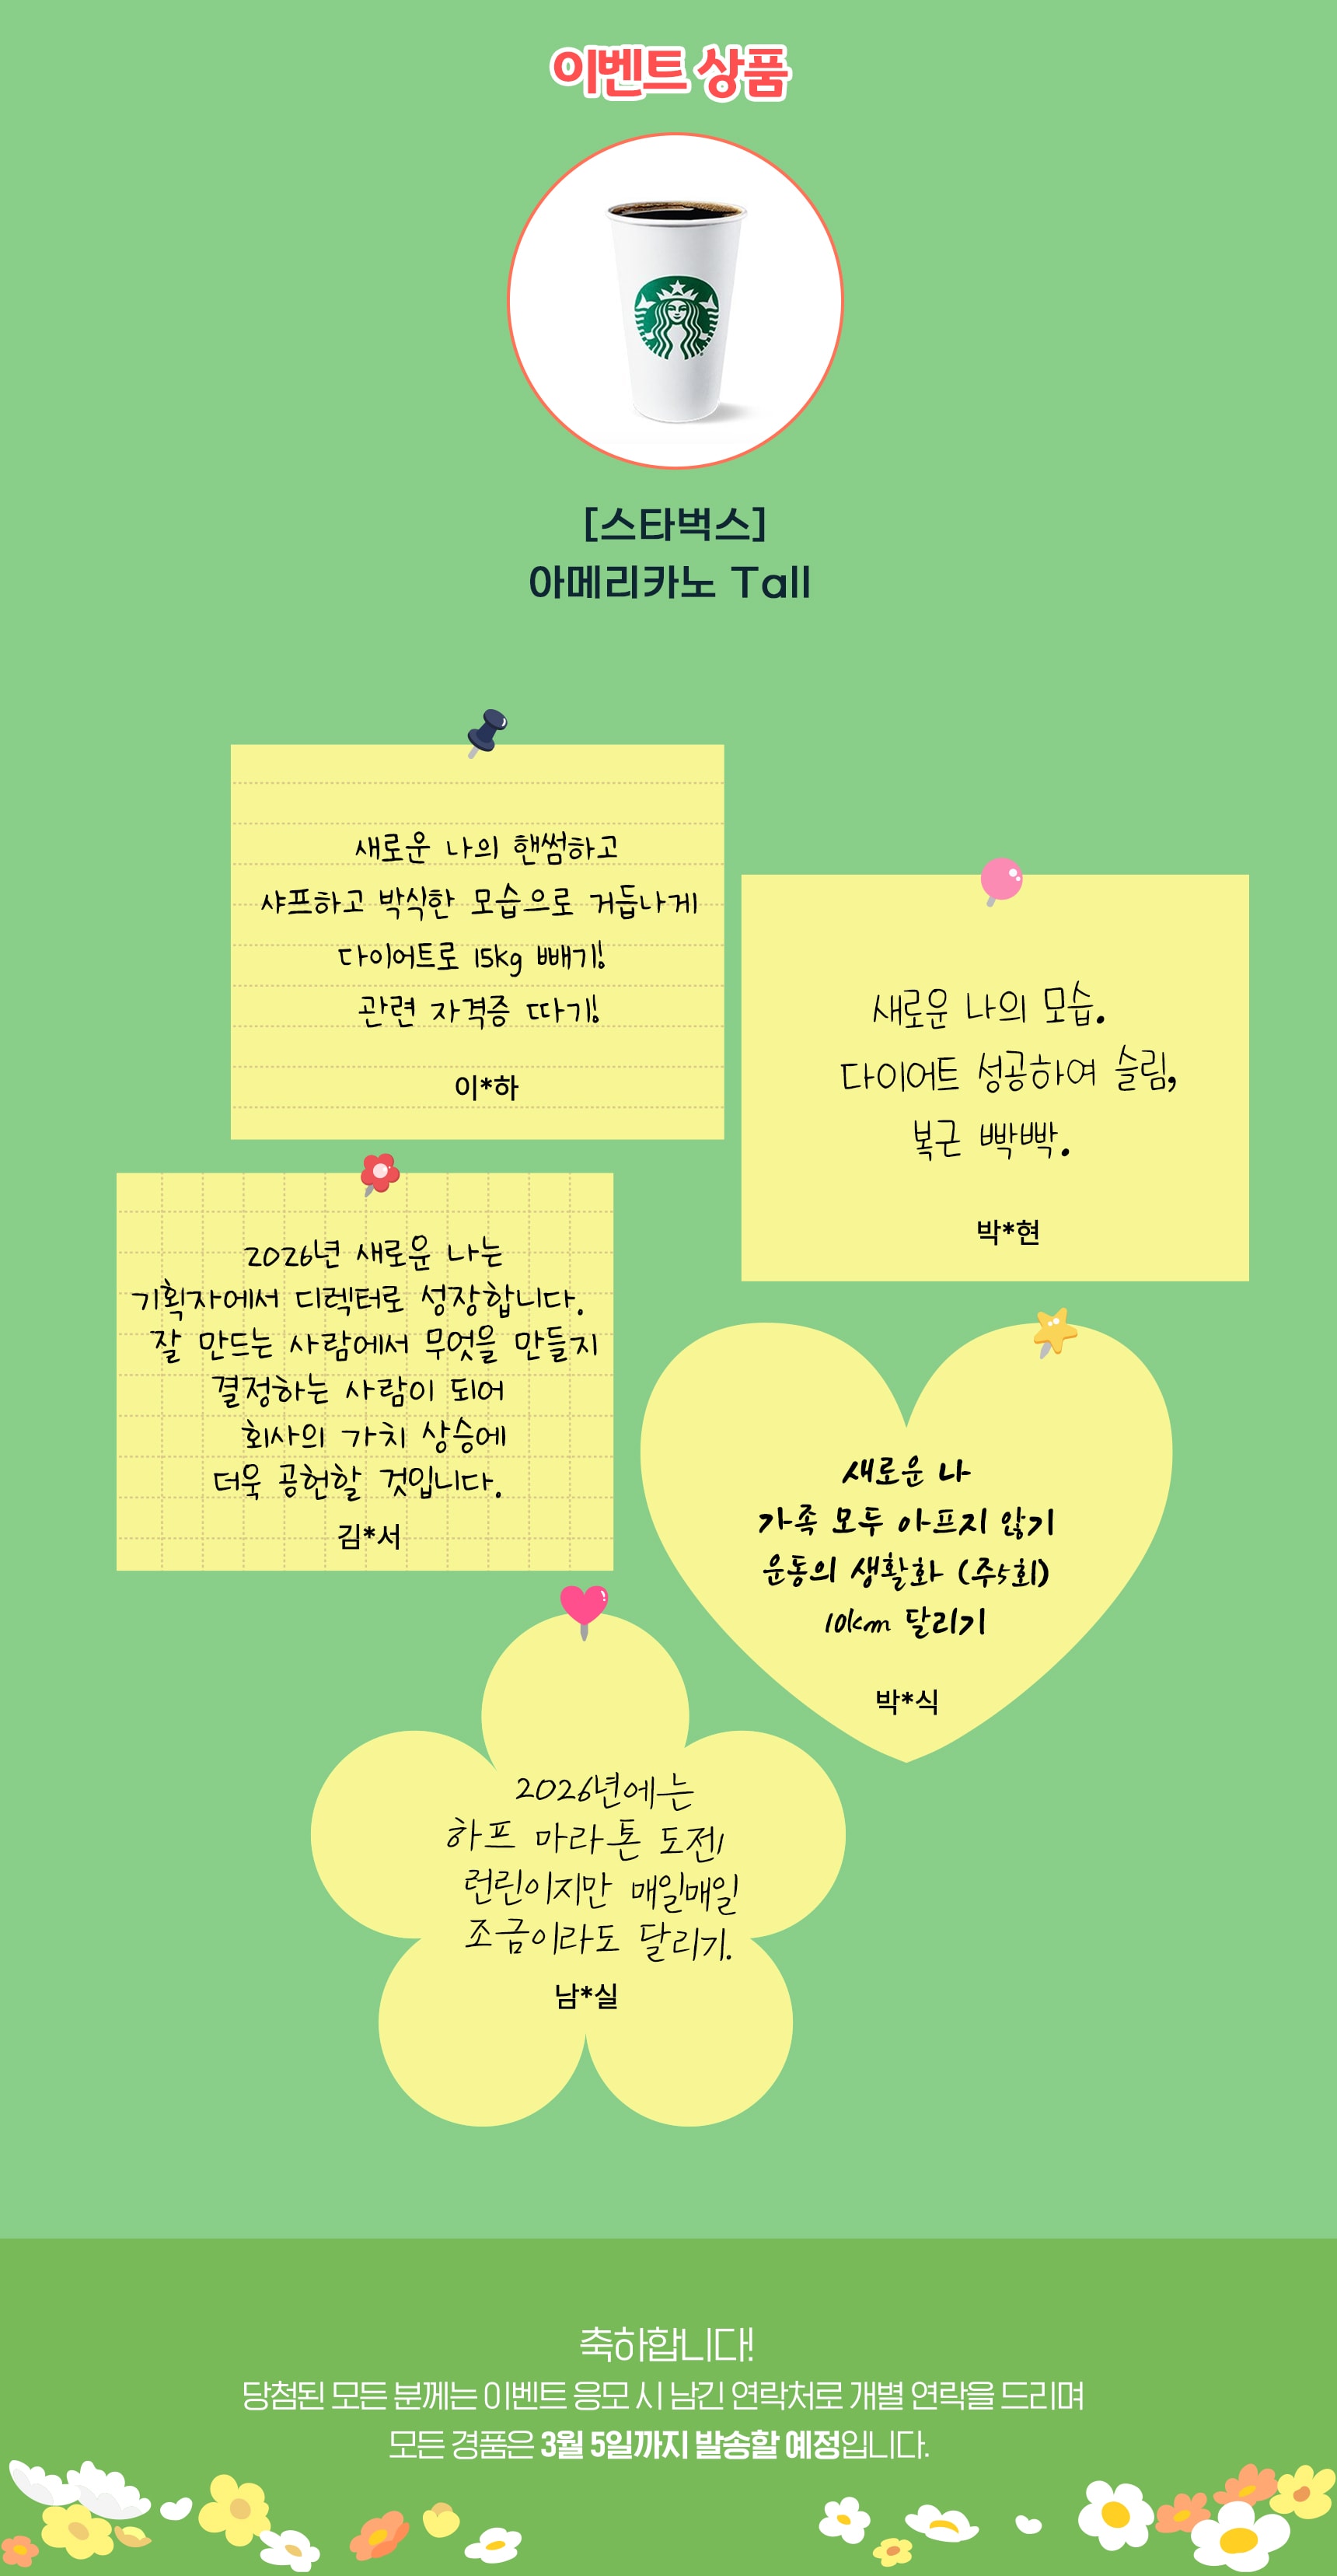 이벤트 상품
[스타벅스]
아메리카노 Tall
새로운 나의 핸썸하고
샤프하고 박식한 모습으로 거듭나게
다이어트로 15kg 빼기!
관련 자격증 따기!
이*하
새로운 나의 모습.
다이어트 성공하여 슬림,
복근 빡빡.
박*현
2026년 새로운 나는
기획자에서 디렉터로 성장합니다.
잘 만드는 사람에서 무엇을 만들지
결정하는 사람이 되어
회사의 가치 상승에
더욱 공헌할 것입니다.
김*서
새로운 나
가족 모두 아프지 않기
운동의 생활화 (주5회)
10km 달리기
박*식
2026년에는
하프 마라톤 도전!
런린이지만 매일매일
조금이라도 달리기.
남*실
축하합니다!
당첨된 모든 분께는 이벤트 응모 시 남긴 연락처로 개별 연락을 드리며
모든 경품은 3월 5일까지 발송할 예정입니다.